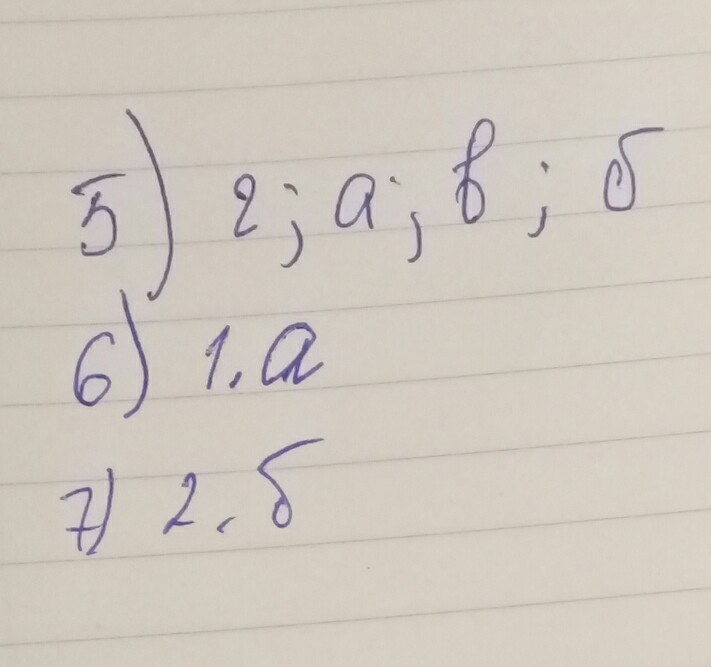 5) г; а; в; б
6) 1. а
7) 2. б